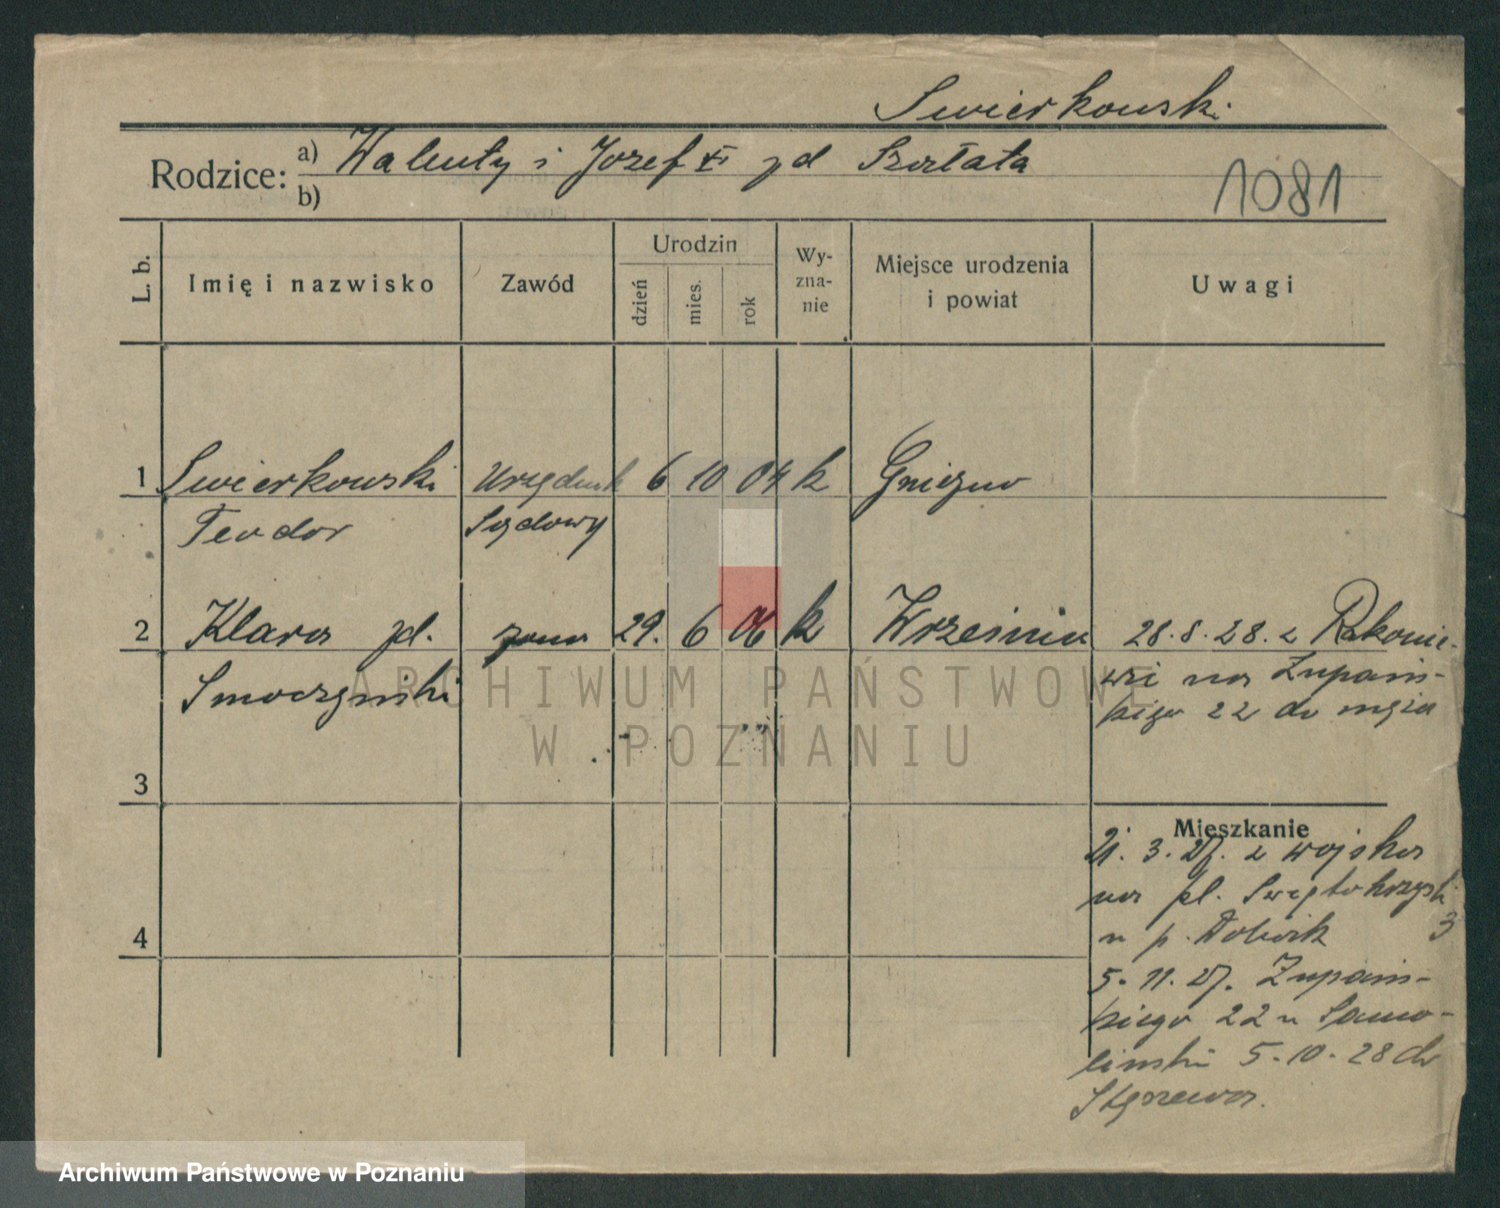 Swierkowski
Rodzice: a) Walenty i Jozef zd Szarłata
b)
1081
L. b.
Imię i nazwisko
Zawód
Urodzin
dzień
mies.
rok
Wy-
zna-
nie
Miejsce urodzenia
i powiat
Uwagi
1 Swierkowski Urzędnik 6 10 04 k Gniezno
Teodor Sądowy
2 Klara zd. żona 29. 6 06 k Wrzesnia 28.8.28. z Rakonie-
Smoczyński wzi na Zupańs-
kiego 22 do męża
3
4
Mieszkanie
21. 3. 27. z wojska
na pl. Swiętokrzyski
u p. 3
5. 11. 27. Zupańs-
kiego 22 u Samo-
linski 5. 10. 28 do
Stęszewa.
ARCHIWUM PAŃSTWOWE
W POZNANIU
Archiwum Państwowe w Poznaniu